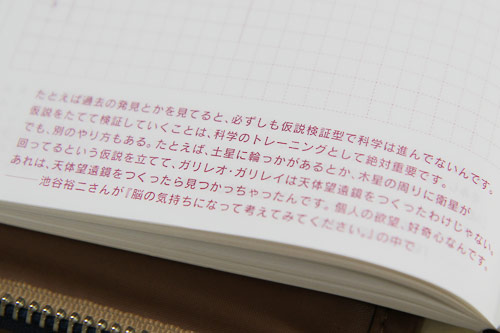 たとえば過去の発見とかを見てると、必ずしも仮説検証型で科学は進んでないんです。
仮説をたてて検証していくことは、科学のトレーニングとして絶対重要です。
でも、別のやり方もある。たとえば、土星に輪っかがあるとか、木星の周りに衛星が
回ってるという仮説を立てて、ガリレオ・ガリレイは天体望遠鏡をつくったわけじゃない。
あれは、天体望遠鏡をつくったら見つかっちゃったんです。個人の欲望、好奇心なんです。
――池谷裕二さんが『脳の気持ちになって考えてみてください。』の中で